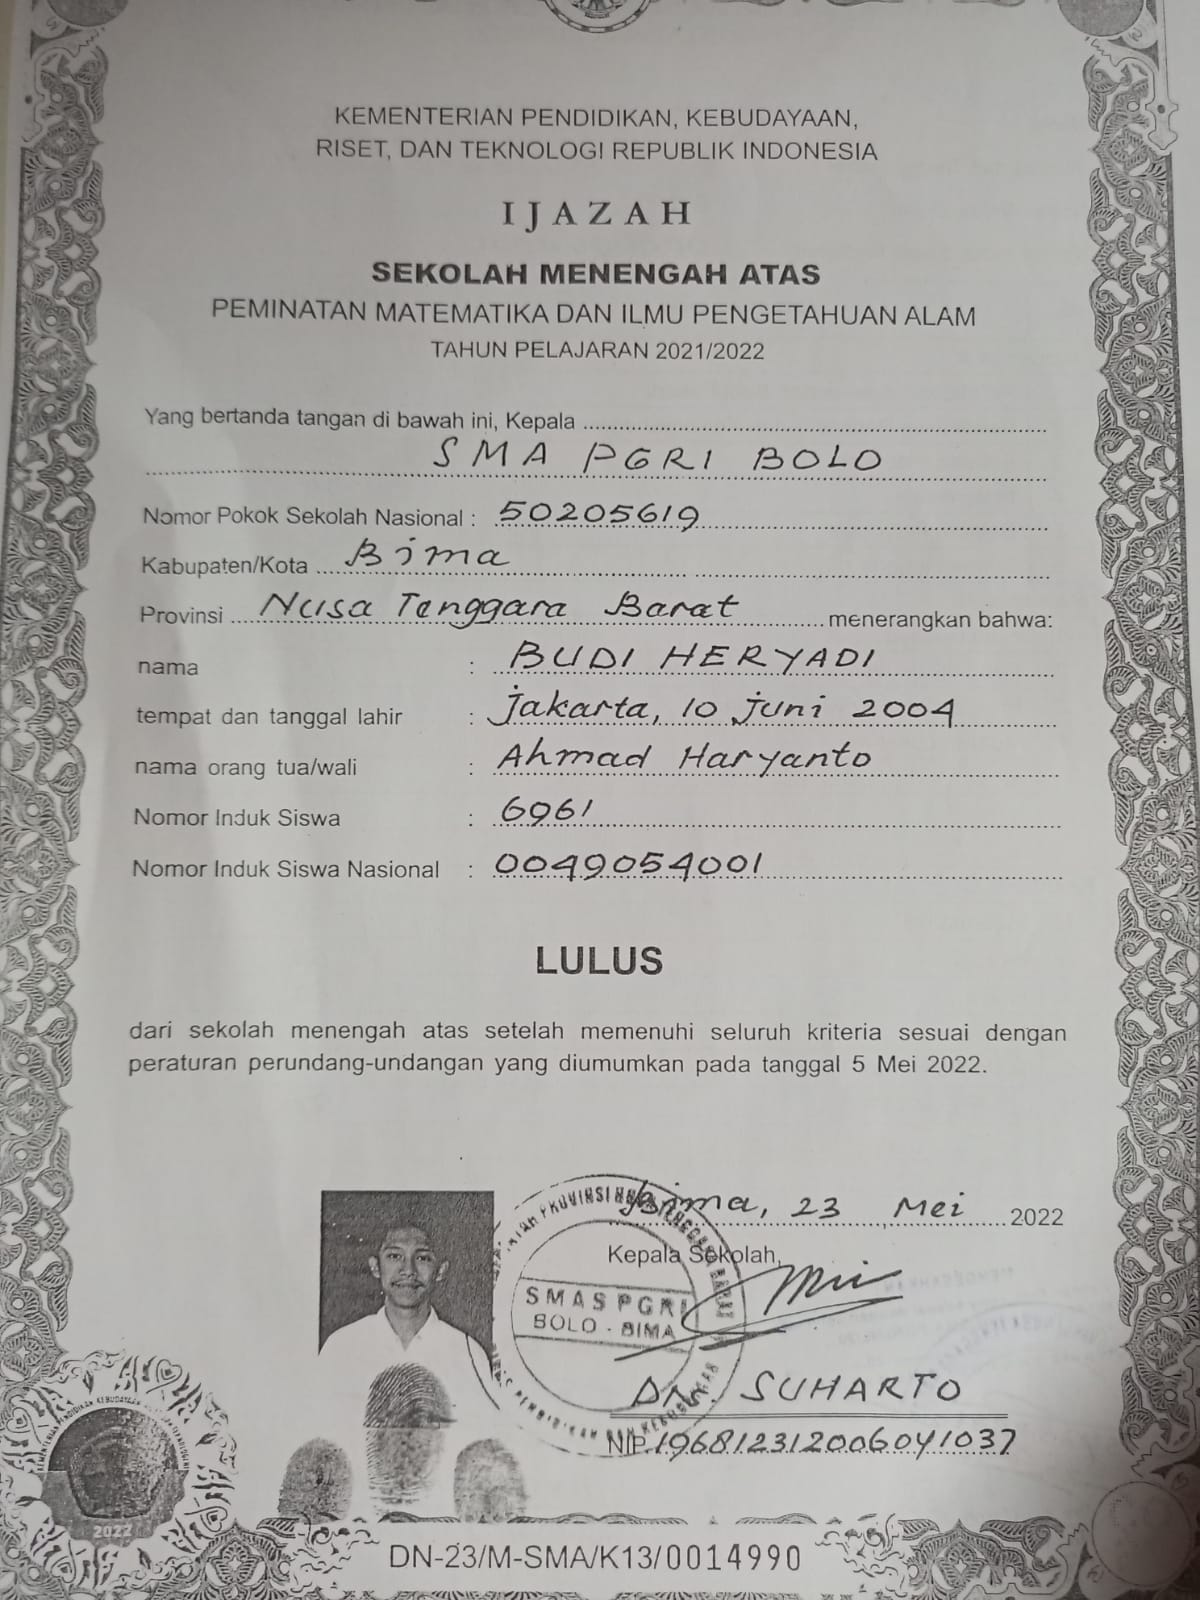 KEMENTERIAN PENDIDIKAN, KEBUDAYAAN,
RISET, DAN TEKNOLOGI REPUBLIK INDONESIA
IJAZAH
SEKOLAH MENENGAH ATAS
PEMINATAN MATEMATIKA DAN ILMU PENGETAHUAN ALAM
TAHUN PELAJARAN 2021/2022
Yang bertanda tangan di bawah ini, Kepala
SMA PGRI BOLO
Nomor Pokok Sekolah Nasional : 50205619
Kabupaten/Kota Bima
Provinsi Nusa Tenggara Barat menerangkan bahwa:
nama : BUDI HERYADI
tempat dan tanggal lahir : Jakarta, 10 Juni 2004
nama orang tua/wali : Ahmad Haryanto
Nomor Induk Siswa : 6961
Nomor Induk Siswa Nasional : 0049054001
LULUS
dari sekolah menengah atas setelah memenuhi seluruh kriteria sesuai dengan
peraturan perundang-undangan yang diumumkan pada tanggal 5 Mei 2022.
Bima, 23 Mei 2022
Kepala Sekolah,
SMAS PGRI
BOLO - BIMA
SUHARTO
NIP. 196812312006041037
2022
DN-23/M-SMA/K13/0014990